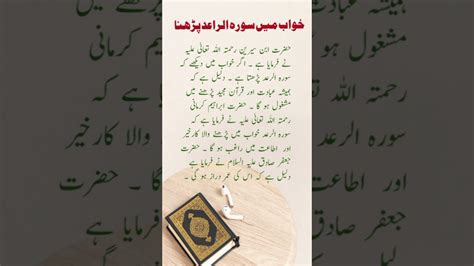 خواب میں سورہ الراعد پڑھنا
حضرت ابن سیرین رحمتہ اللہ تعالیٰ علیہ
نے فرمایا ہے ۔ اگر خواب میں دیکھے کہ
سورہ الرعد پڑھتا ہے ۔ دلیل ہے کہ
ہمیشہ عبادت اور قرآن مجید پڑھنے میں
مشغول ہو گا ۔ حضرت ابراہیم کرمانی
رحمتہ اللہ تعالیٰ علیہ نے فرمایا ہے کہ
سورہ الرعد خواب میں پڑھنے والا کارخیر
اور اطاعت میں راغب ہو گا ۔ حضرت
جعفر صادق علیہ السلام نے فرمایا ہے
دلیل ہے کہ اس کی عمر دراز ہو گی ۔